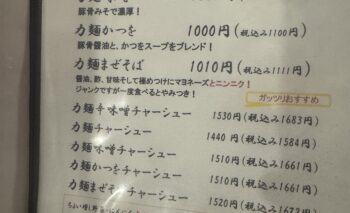 豚骨みそで濃厚!
力麺かつを 1000円(税込み1100円)
豚骨醤油と、かつをスープをブレンド!
力麺まぜそば 1010円(税込み1111円)
醤油、酢、甘味そして極めつけにマヨネーズとニンニク!
ジャンクですが一度食べるとやみつき!
ガッツリおすすめ
力麺辛味噌チャーシュー 1530円(税込み1683円)
力麺チャーシュー 1440円(税込み1584円)
力麺味噌チャーシュー 1510円(税込み1661円)
力麺かつをチャーシュー 1510円(税込み1661円)
力麺まぜそばチャーシュー 1520円(税込み1672円)